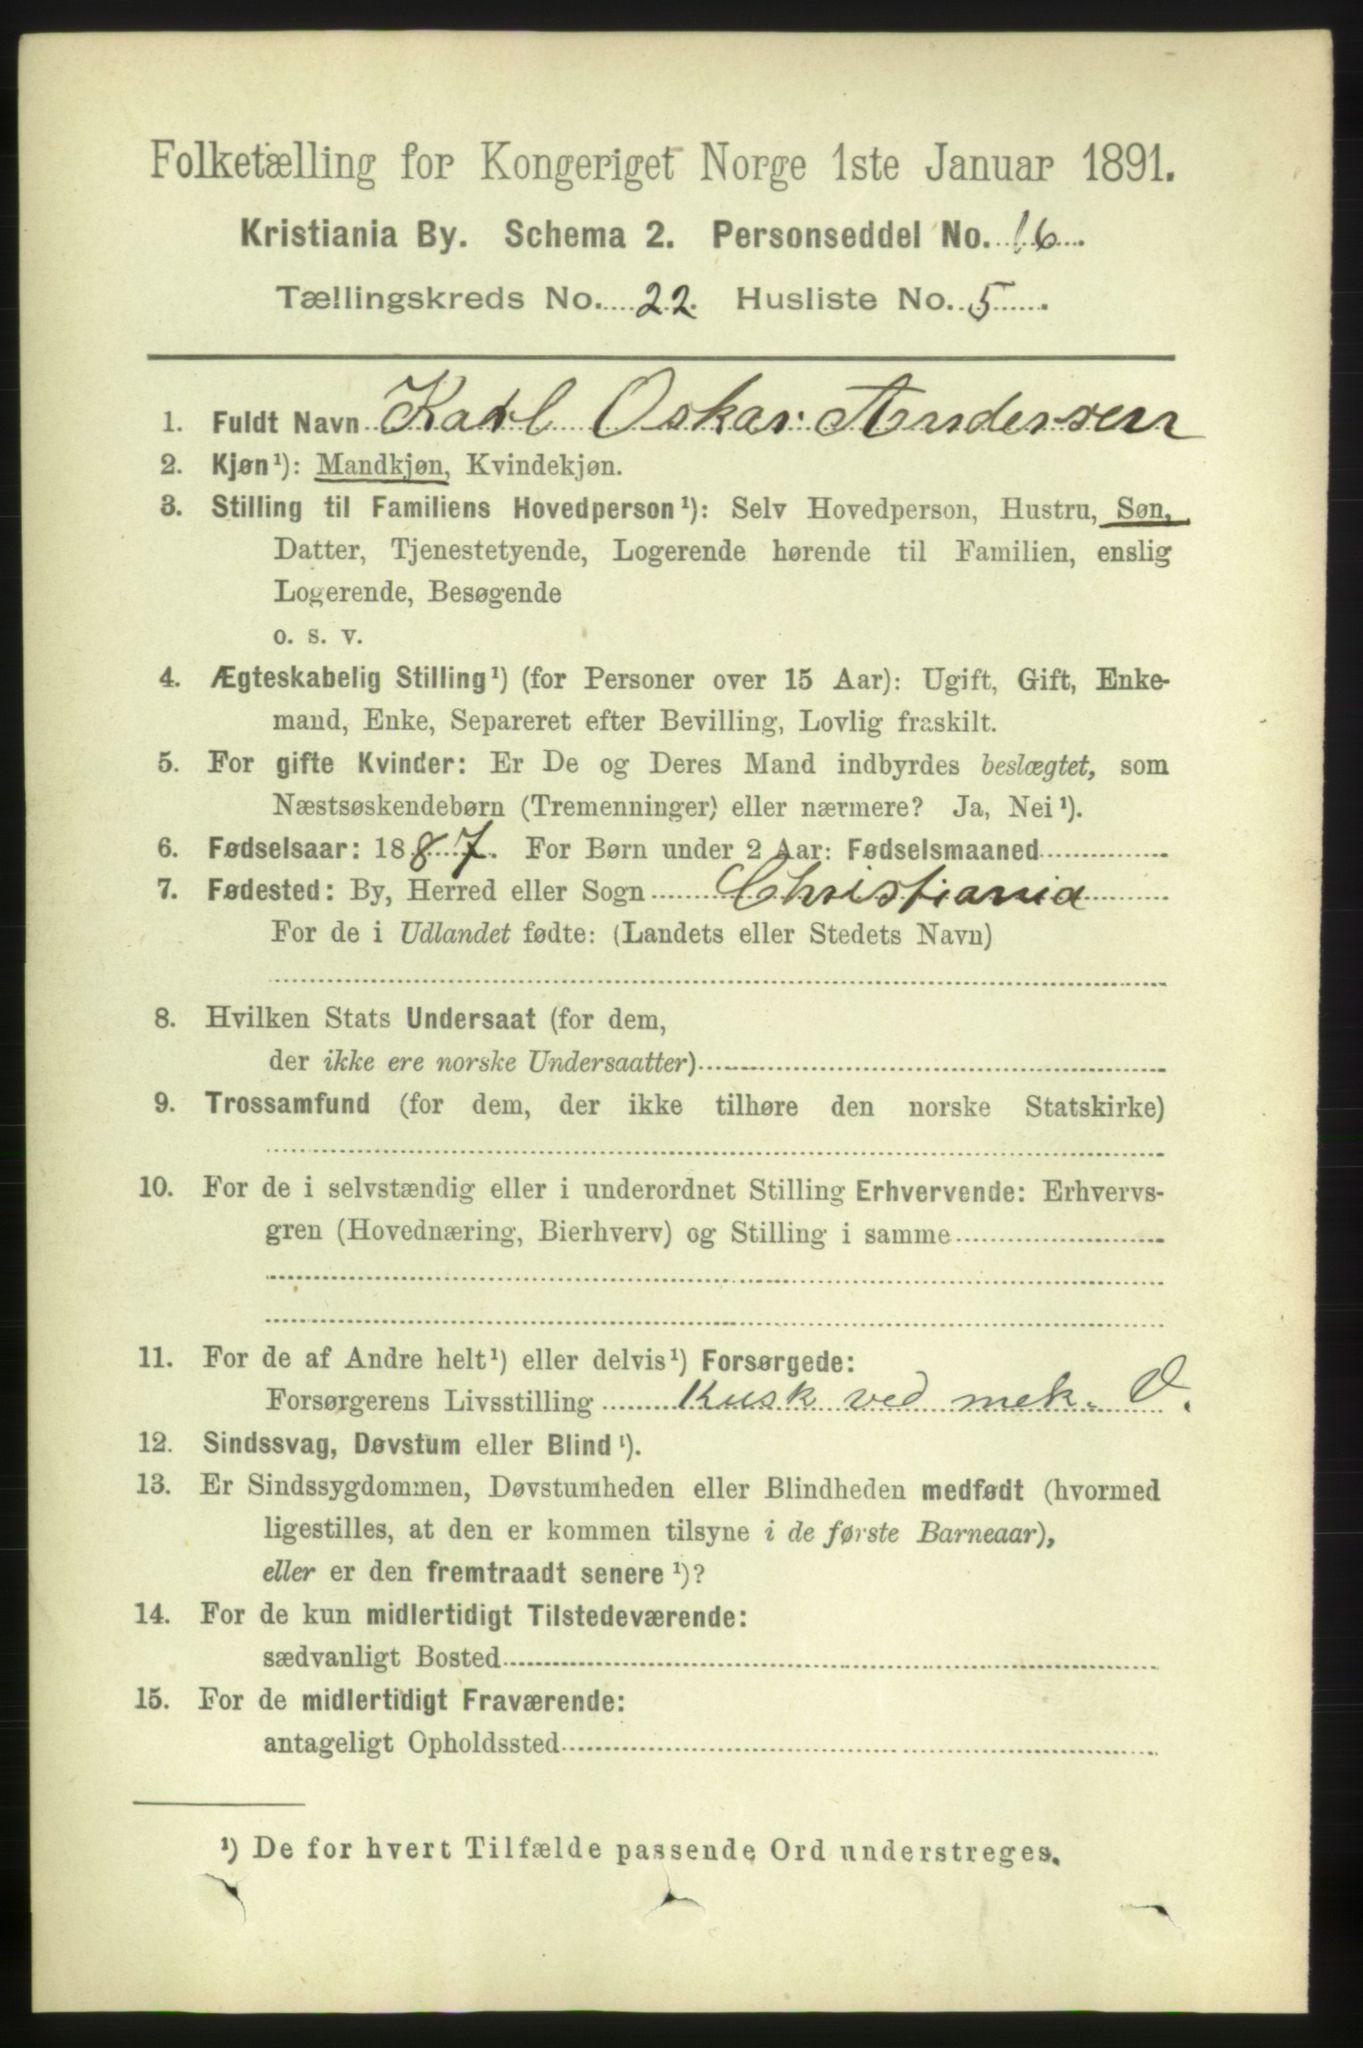 Folketælling for Kongeriget Norge 1ste Januar 1891.
Kristiania By. Schema 2. Personseddel No. 16.
Tællingskreds No. 22. Husliste No. 5.
1. Fuldt Navn Karl Oskar Andersen
2. Kjøn¹): Mandkjøn, Kvindekjøn.
3. Stilling til Familiens Hovedperson¹): Selv Hovedperson, Hustru, Søn,
Datter, Tjenestetyende, Logerende hørende til Familien, enslig
Logerende, Besøgende
o. s. v.
4. Ægteskabelig Stilling¹) (for Personer over 15 Aar): Ugift, Gift, Enke-
mand, Enke, Separeret efter Bevilling, Lovlig fraskilt.
5. For gifte Kvinder: Er De og Deres Mand indbyrdes beslægtet, som
Næstsøskendebørn (Tremenninger) eller nærmere? Ja, Nei¹).
6. Fødselsaar: 1887. For Børn under 2 Aar: Fødselsmaaned
7. Fødested: By, Herred eller Sogn Christiania
For de i Udlandet fødte: (Landets eller Stedets Navn)
8. Hvilken Stats Undersaat (for dem,
der ikke ere norske Undersaatter)
9. Trossamfund (for dem, der ikke tilhøre den norske Statskirke)
10. For de i selvstændig eller i underordnet Stilling Erhvervende: Erhvervs-
gren (Hovednæring, Bierhverv) og Stilling i samme
11. For de af Andre helt¹) eller delvis¹) Forsørgede:
Forsørgerens Livsstilling Kusk ved mek. V.
12. Sindssvag, Døvstum eller Blind¹).
13. Er Sindssygdommen, Døvstumheden eller Blindheden medfødt (hvormed
ligestilles, at den er kommen tilsyne i de første Barneaar),
eller er den fremtraadt senere¹)?
14. For de kun midlertidigt Tilstedeværende:
sædvanligt Bosted
15. For de midlertidigt Fraværende:
antageligt Opholdssted
¹) De for hvert Tilfælde passende Ord understreges.